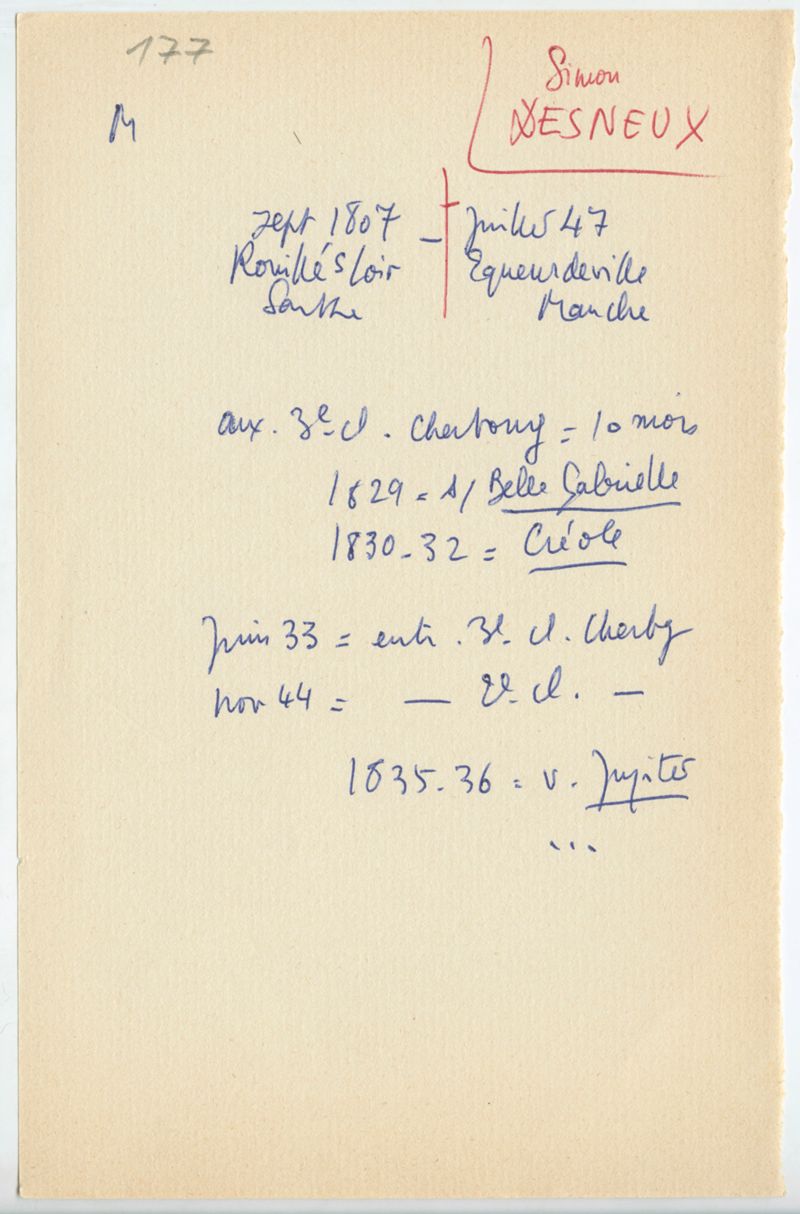 177
Simon
DESNEUX
M
sept 1807 – juillet 47
Rouillé s/ Loir Equeurdeville
Sarthe Manche
aux. 3e cl. Cherbourg = 10 mois
1829 = s/ Belle Gabrielle
1830-32 = Créole
juin 33 = entr. 3e cl. Cherbg
nov 44 = — 2e cl. —
1835-36 = v. Jupiter
...